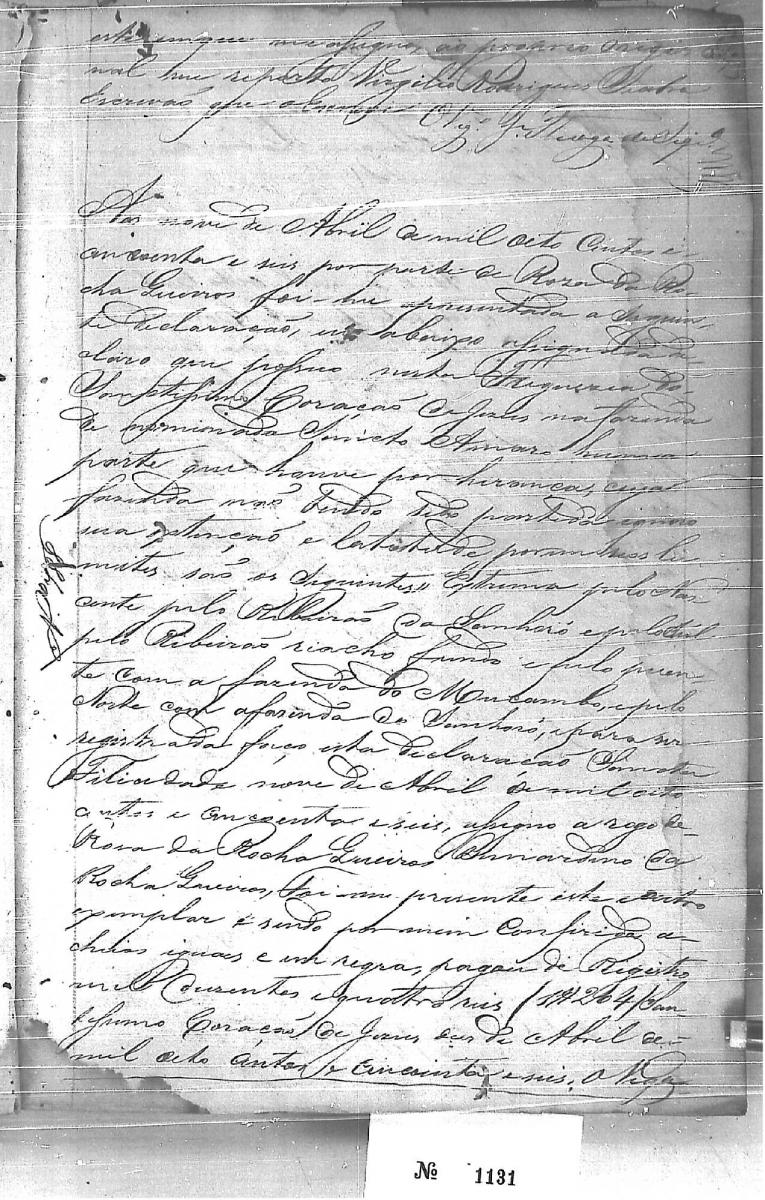 me assigno, ao proprio Origi
nal me reporto Virgilio Rodrigues
Escrivaõ que o Escrevi O Vigº
Aos nove de Abril de mil oito Centos e
cincoenta e seis por parte de Roza da Ro
cha Gueiros foi-me apresentada a seguin
te declaraçaõ, eu abaixo assignada de
claro que possuo nesta Freguezia do
Santissimo Coraçaõ de Jesus na fazenda
de nominada Sancto Amaro huma
parte que houve por herança, cuja
fazenda naõ tendo sido partida ignoro
sua extinçaõ e latitude, porem seos li
mites saõ os seguintes: Extrema pelo Nas
cente pelo Ribeiraõ do Sanharó e pelo Sul
pelo Ribeiraõ riacho fundo e pelo poen
te com a fazenda do Mucambo, e pelo
Norte com a fazenda do Sanharó, e para ser
registrada faço esta declaraçaõ
Filicidade nove de Abril de mil oito
centos e cincoenta e seis, assigno a rogo de
Roza da Rocha Gueiros Bernardino da
Rocha Gueiros, Foi-me presente este e outro
exemplar e sendo por mim Conferidos a
chei-os iguaes e em regra, pagou de Registro
mil duzentos e quatro reis (1#204) San
tissimo Coraçaõ de Jesus de Abril de
mil oito Centos e Cincoenta e seis, O Vigrº
Nº 1131